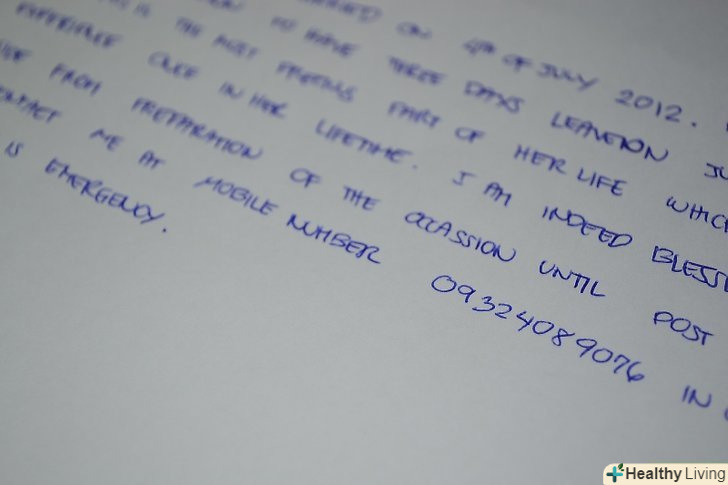 ON 4TH OF JULY 2012.
TO HAVE THREE DAYS LEAVE ON
IS THE MOST PART OF HER LIFE WHICH
EXPERIENCE ONCE IN HER LIFETIME. I AM INDEED
FROM PREPARATION OF THE OCCASSION UNTIL POST
ME AT MOBILE NUMBER 09324089076 IN
IS EMERGENCY.
Healthy Living